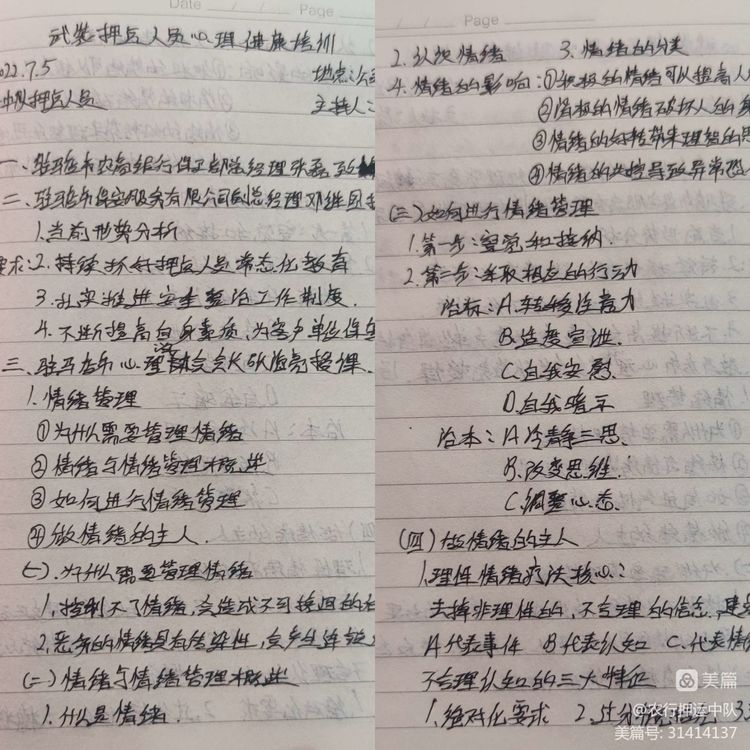 Date
Page
武装押运人员心理健康培训
2022.7.5 地点:公
中队押运人员 主持人:
一、驻马店市农商银行保卫部总经理张磊致
二、驻马店市保安服务有限公司副总经理邓继
1.当前形势分析
要求:2.持续抓好押运人员常态化教育
3.扎实推进安全整治工作制度.
4.不断提高自身素质,为客户单位保
三、驻马店市心理 会会长 授课.
1.情绪管理
①为什么需要管理情绪
②情绪与情绪管理概述
③如何进行情绪管理
④做情绪的主人.
(一).为什么需要管理情绪
1.控制不了情绪,会造成不可挽回的
2.恶劣的情绪具有传染性,会产生连锁
(二)情绪与情绪管理概述
1.什么是情绪.
Page
2.认识情绪 3.情绪的分类
4.情绪的影响:①积极的情绪可以提高人
②消极的情绪破坏人的
③情绪的好转带来理智的
④情绪的失控导致异常
(三)如何进行情绪管理
1.第一步:察觉和接纳.
2.第二步:采取相应的行动
治标:A.转移注意力
B.适度宣泄.
C.自我安慰.
D.自我暗示
治本:A冷静三思.
B.改变思维.
C.调整心态.
(四)做情绪的主人
1.理性情绪疗法核心:
去掉非理性的,不合理的信念,建
A代表事件 B代表认知 C.代表情
不合理认知的三大特征
1.绝对化要求 2.过分概括 3
美篇
@农行押运中队
美篇号: 31414137